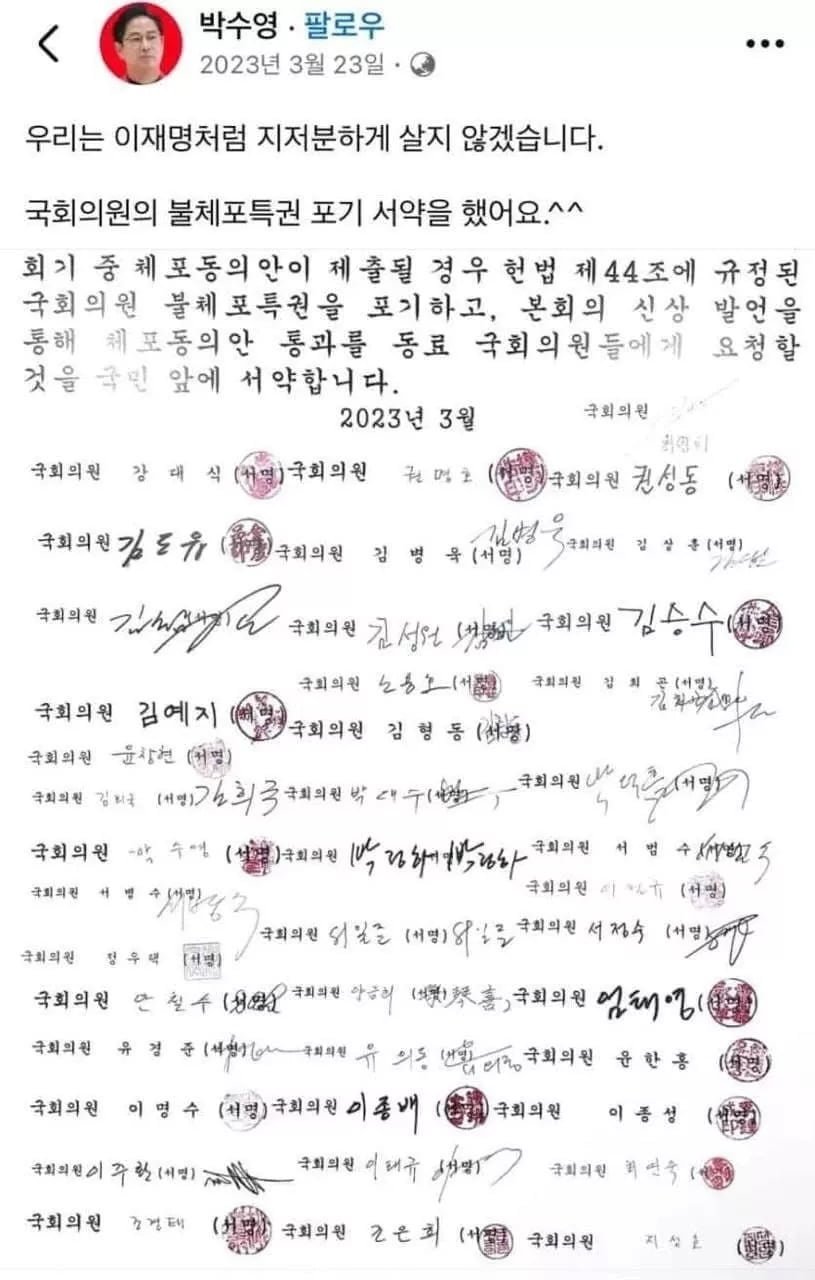 박수영 · 팔로우
2023년 3월 23일 ·
우리는 이재명처럼 지저분하게 살지 않겠습니다.
국회의원의 불체포특권 포기 서약을 했어요.^^
회기 중 체포동의안이 제출될 경우 헌법 제44조에 규정된
국회의원 불체포특권을 포기하고, 본회의 신상 발언을
통해 체포동의안 통과를 동료 국회의원들에게 요청할
것을 국민 앞에 서약합니다.
2023년 3월
국회의원
국회의원 강대식 (서명) 국회의원 권명호 (서명) 국회의원 권성동 (서명)
국회의원 김도읍 국회의원 김병욱 (서명) 김병욱 국회의원 김상훈 (서명)
국회의원 국회의원 김성원 (서명) 국회의원 김승수 (서명)
국회의원 노용호 (서명) 국회의원 김희곤 (서명)
국회의원 김예지 (서명) 국회의원 김형동 (서명)
국회의원 윤창현 (서명)
국회의원 김희국 (서명) 김희국 국회의원 박대수 (서명) 국회의원 박덕흠 (서명)
국회의원 박수영 (서명) 국회의원 박정하 박정하 국회의원 서범수 (서명)
국회의원 서병수 (서명) 국회의원 (서명)
국회의원 서일준 (서명) 서일준 국회의원 서정숙 (서명)
국회의원 정우택 (서명)
국회의원 안철수 (서명) 국회의원 양금희 (서명) 국회의원 엄태영 (서명)
국회의원 유경준 (서명) 국회의원 유의동 (서명) 국회의원 윤한홍 (서명)
국회의원 이명수 (서명) 국회의원 이종배 (서명) 국회의원 이종성 (서명)
국회의원 이주환 (서명) 국회의원 이태규 (서명) 국회의원 최연숙 (서명)
국회의원 조경태 (서명) 국회의원 조은희 (서명) 국회의원 지성호 (서명)